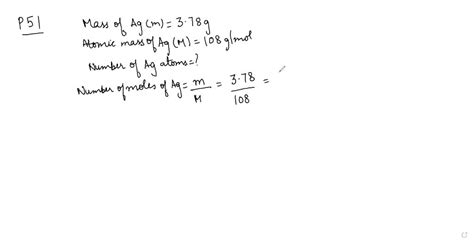 P51
Mass of Ag (m) = 3.78g
Atomic mass of Ag (M) = 108 g/mol
Number of Ag atoms = ?
Number of moles of Ag = m/M = 3.78/108 =